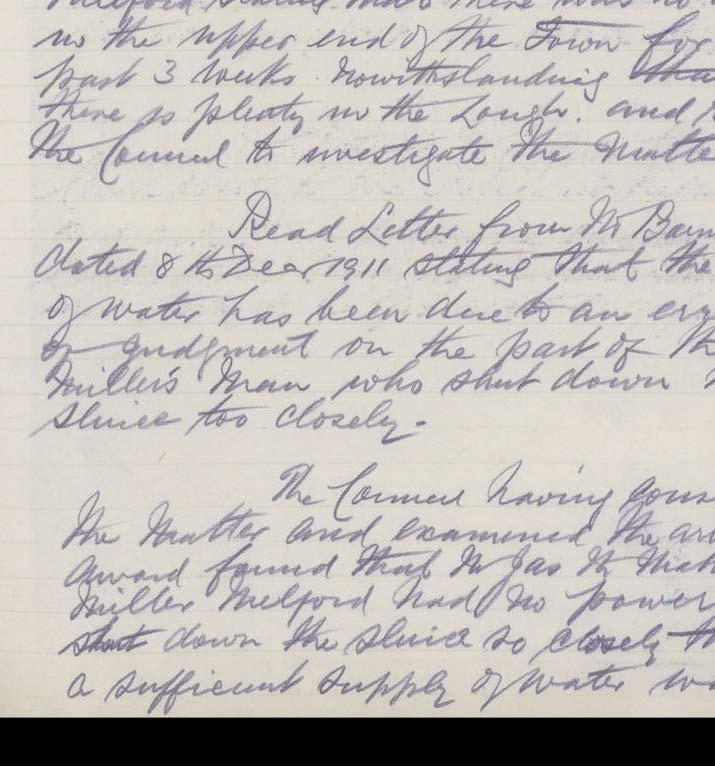 Milford stating that there was no
in the upper end of the Town for
past 3 weeks. nowithslanding tha
there is plenty in the Lough. and
the Council to investigate the Matte
Read Letter from Mr Barn
dated 8th Decr 1911 stating that the
of water has been due to an err
or judgment on the part of th
Miller's Man who shut down
sluice too closely.
The Council having cons
the Matter and examined the ar
award found that Mr Jas
Miller Milford had no power
shut down the sluice so closely th
a sufficient supply of water wa